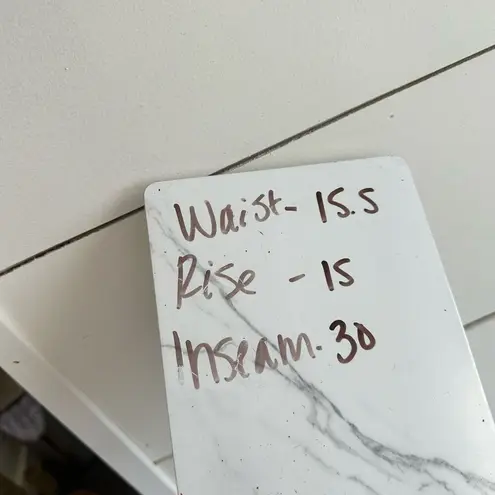 Waist- 15.5
Rise - 15
Inseam. 30